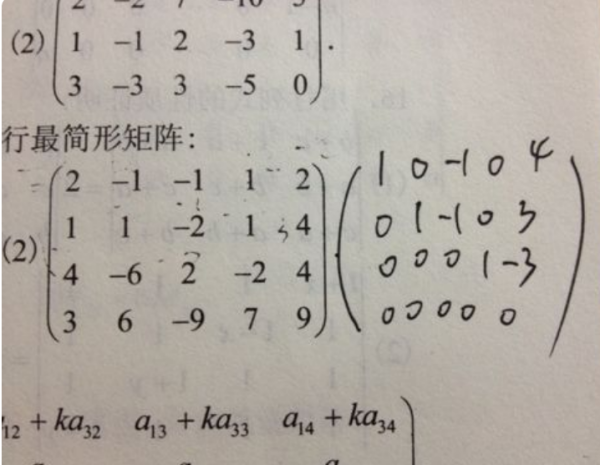 2 -2 7 -10 5
(2) 1 -1 2 -3 1 .
3 -3 3 -5 0
行最简形矩阵:
(2)
2 -1 -1 1 2
1 1 -2 1 4
4 -6 2 -2 4
3 6 -9 7 9
1 0 -1 0 4
0 1 -1 0 3
0 0 0 1 -3
0 0 0 0 0
12 + ka32 a13 + ka33 a14 + ka34